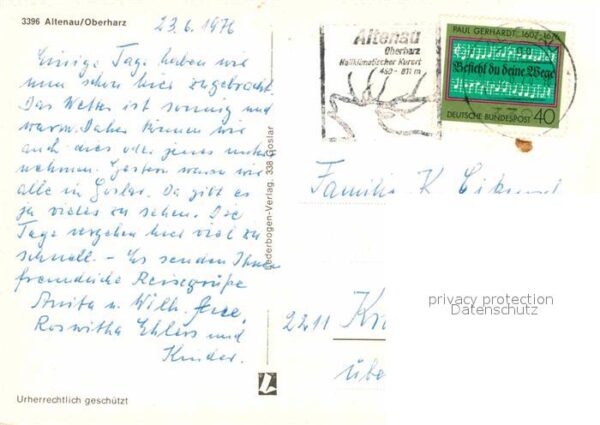 3396 Altenau/Oberharz
23.6.1976
Einige Tage haben wir
nun schon hier zugebracht.
Das Wetter ist sonnig und
warm. Daher können wir
auch dies oder jenes unter-
nehmen. Gestern waren wir
alle in Goslar. Da gibt es
ja vieles zu sehen. Die
Tage vergehen hier viel zu
schnell. - Es senden Ihnen
freundliche Reisegrüße
Anita u. Wilh.
Roswitha Ehlers und
Kinder.
Urheberrechtlich geschützt
Federbogen-Verlag, 338 Goslar
Altenau
Oberharz
Heilklimatischer Kurort
450 - 811 m
PAUL GERHARDT 1607-1676
Befiehl du deine Wege
DEUTSCHE BUNDESPOST 40
Familie K.
2211
privacy protection
Datenschutz